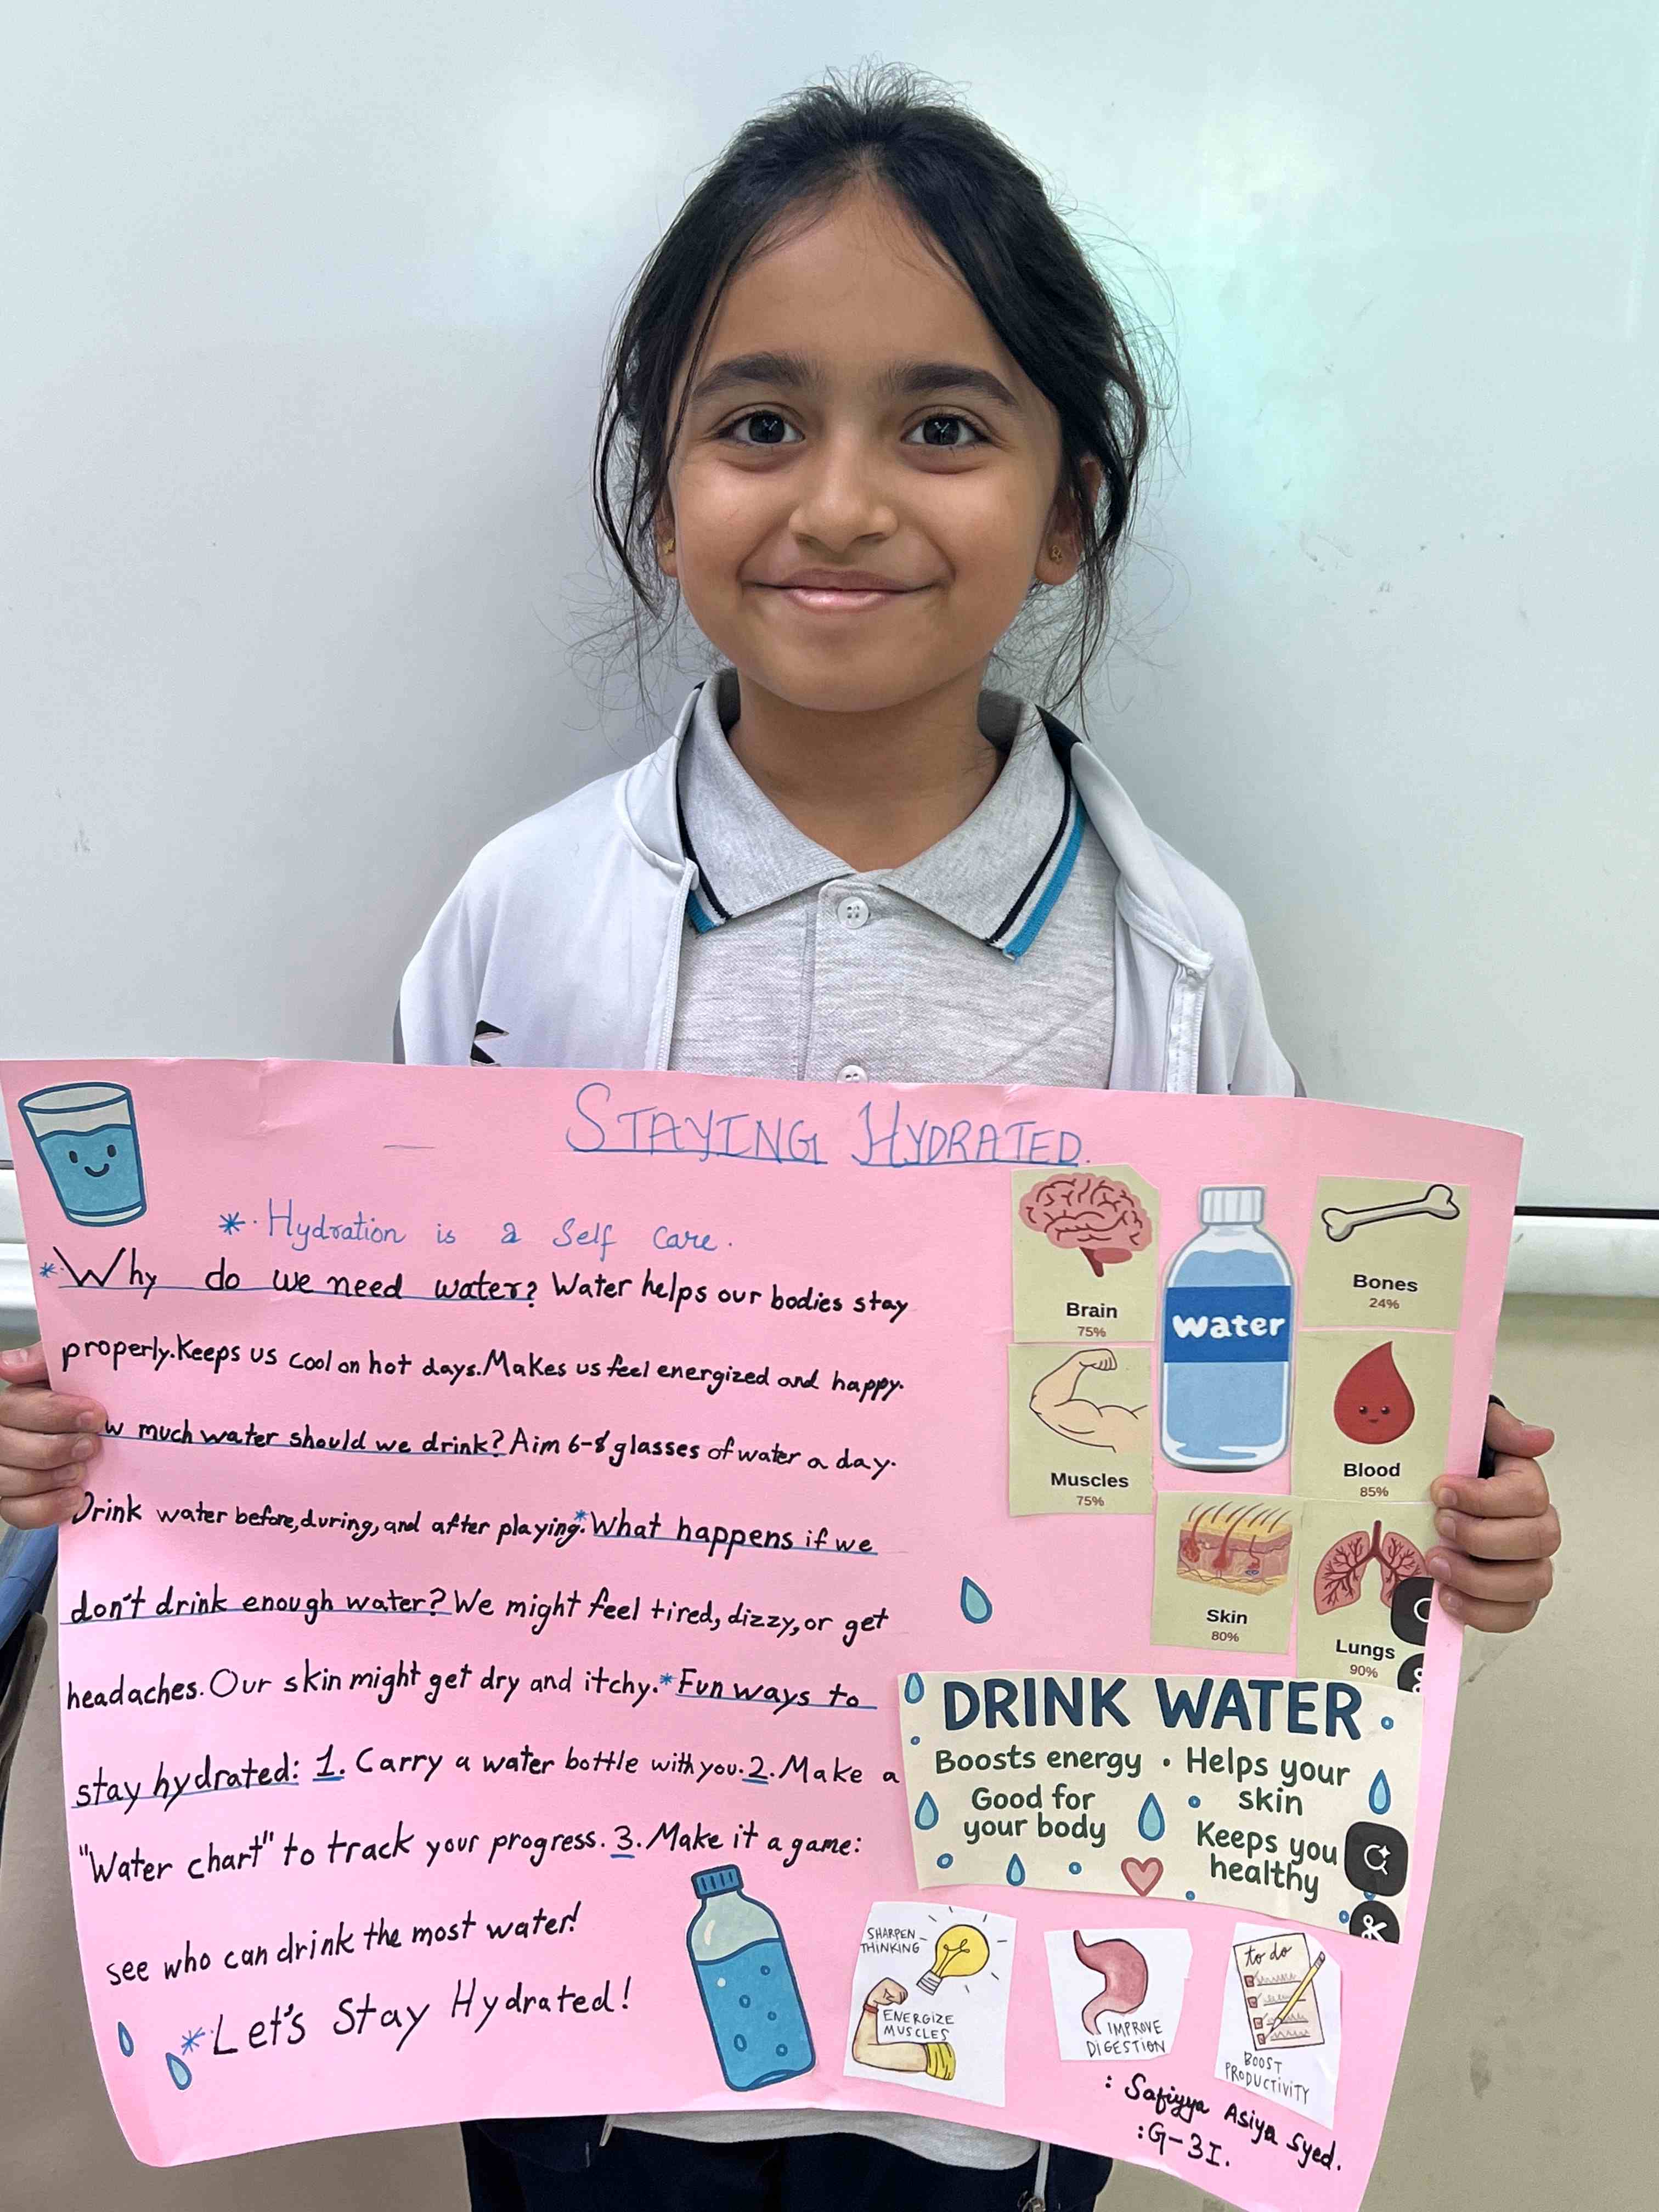 STAYING HYDRATED.
* Hydration is a Self Care.
* Why do we need water? Water helps our bodies stay
properly. Keeps us cool on hot days. Makes us feel energized and happy.
w much water should we drink? Aim 6-8 glasses of water a day.
Drink water before, during, and after playing. * What happens if we
don't drink enough water? We might feel tired, dizzy, or get
headaches. Our skin might get dry and itchy. * Fun ways to
stay hydrated: 1. Carry a water bottle with you. 2. Make a
"Water chart" to track your progress. 3. Make it a game:
see who can drink the most water!
* Let's Stay Hydrated!
Brain
75%
Water
Bones
24%
Muscles
75%
Blood
85%
Skin
80%
Lungs
90%
DRINK WATER
Boosts energy • Helps your
skin
Good for
your body
Keeps you
healthy
SHARPEN
THINKING
ENERGIZE
MUSCLES
IMPROVE
DIGESTION
to do
BOOST
PRODUCTIVITY
: Safiyya Asiya Syed.
: G-3I.